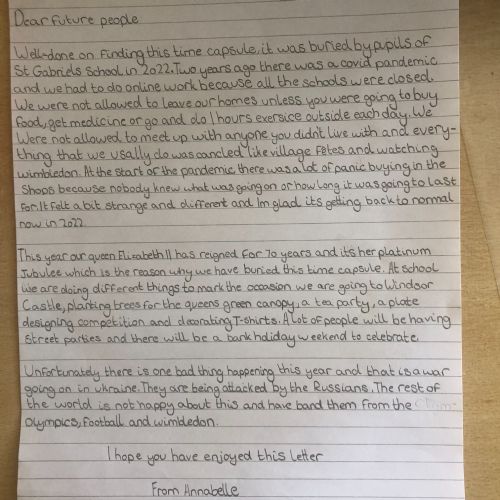 Dear future people
Well-done on finding this time capsule, it was buried by pupils of
St Gabriels School in 2022. Two years ago there was a covid pandemic
and we had to do online work because all the schools were closed.
We were not allowed to leave our homes unless you were going to buy
food, get medicine or go and do 1 hours exersice outside each day. We
were not allowed to meet up with anyone you didn't live with and every-
thing that we usally do was cancled like village fêtes and watching
wimbledon. At the start of the pandemic there was a lot of panic buying in the
shops because nobody knew what was going on or how long it was going to last
for. It felt a bit strange and different and Im glad its getting back to normal
now in 2022.
This year our queen Elisabeth II has reigned for 70 years and its her platinum
Jubulee which is the reason why we have buried this time capsule. At school
we are doing different things to mark the occasion we are going to Windsor
Castle, planting trees for the queens green canopy, a tea party, a plate
designing competition and decorating T-shirts. A lot of people will be having
street parties and there will be a bank holiday weekend to celebrate.
Unfortunately there is one bad thing happening this year and that is a war
going on in ukraine. They are being attacked by the Russians. The rest of
the world is not happy about this and have band them from the
Olympics, football and wimbledon.
I hope you have enjoyed this letter
From Annabelle